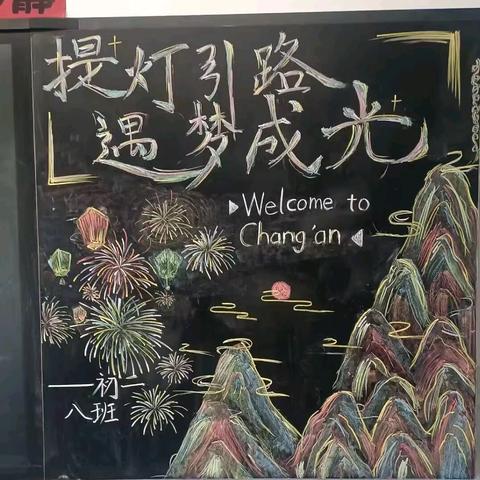 静
提灯引路
遇梦成光
Welcome to
Chang'an
——初二
八班